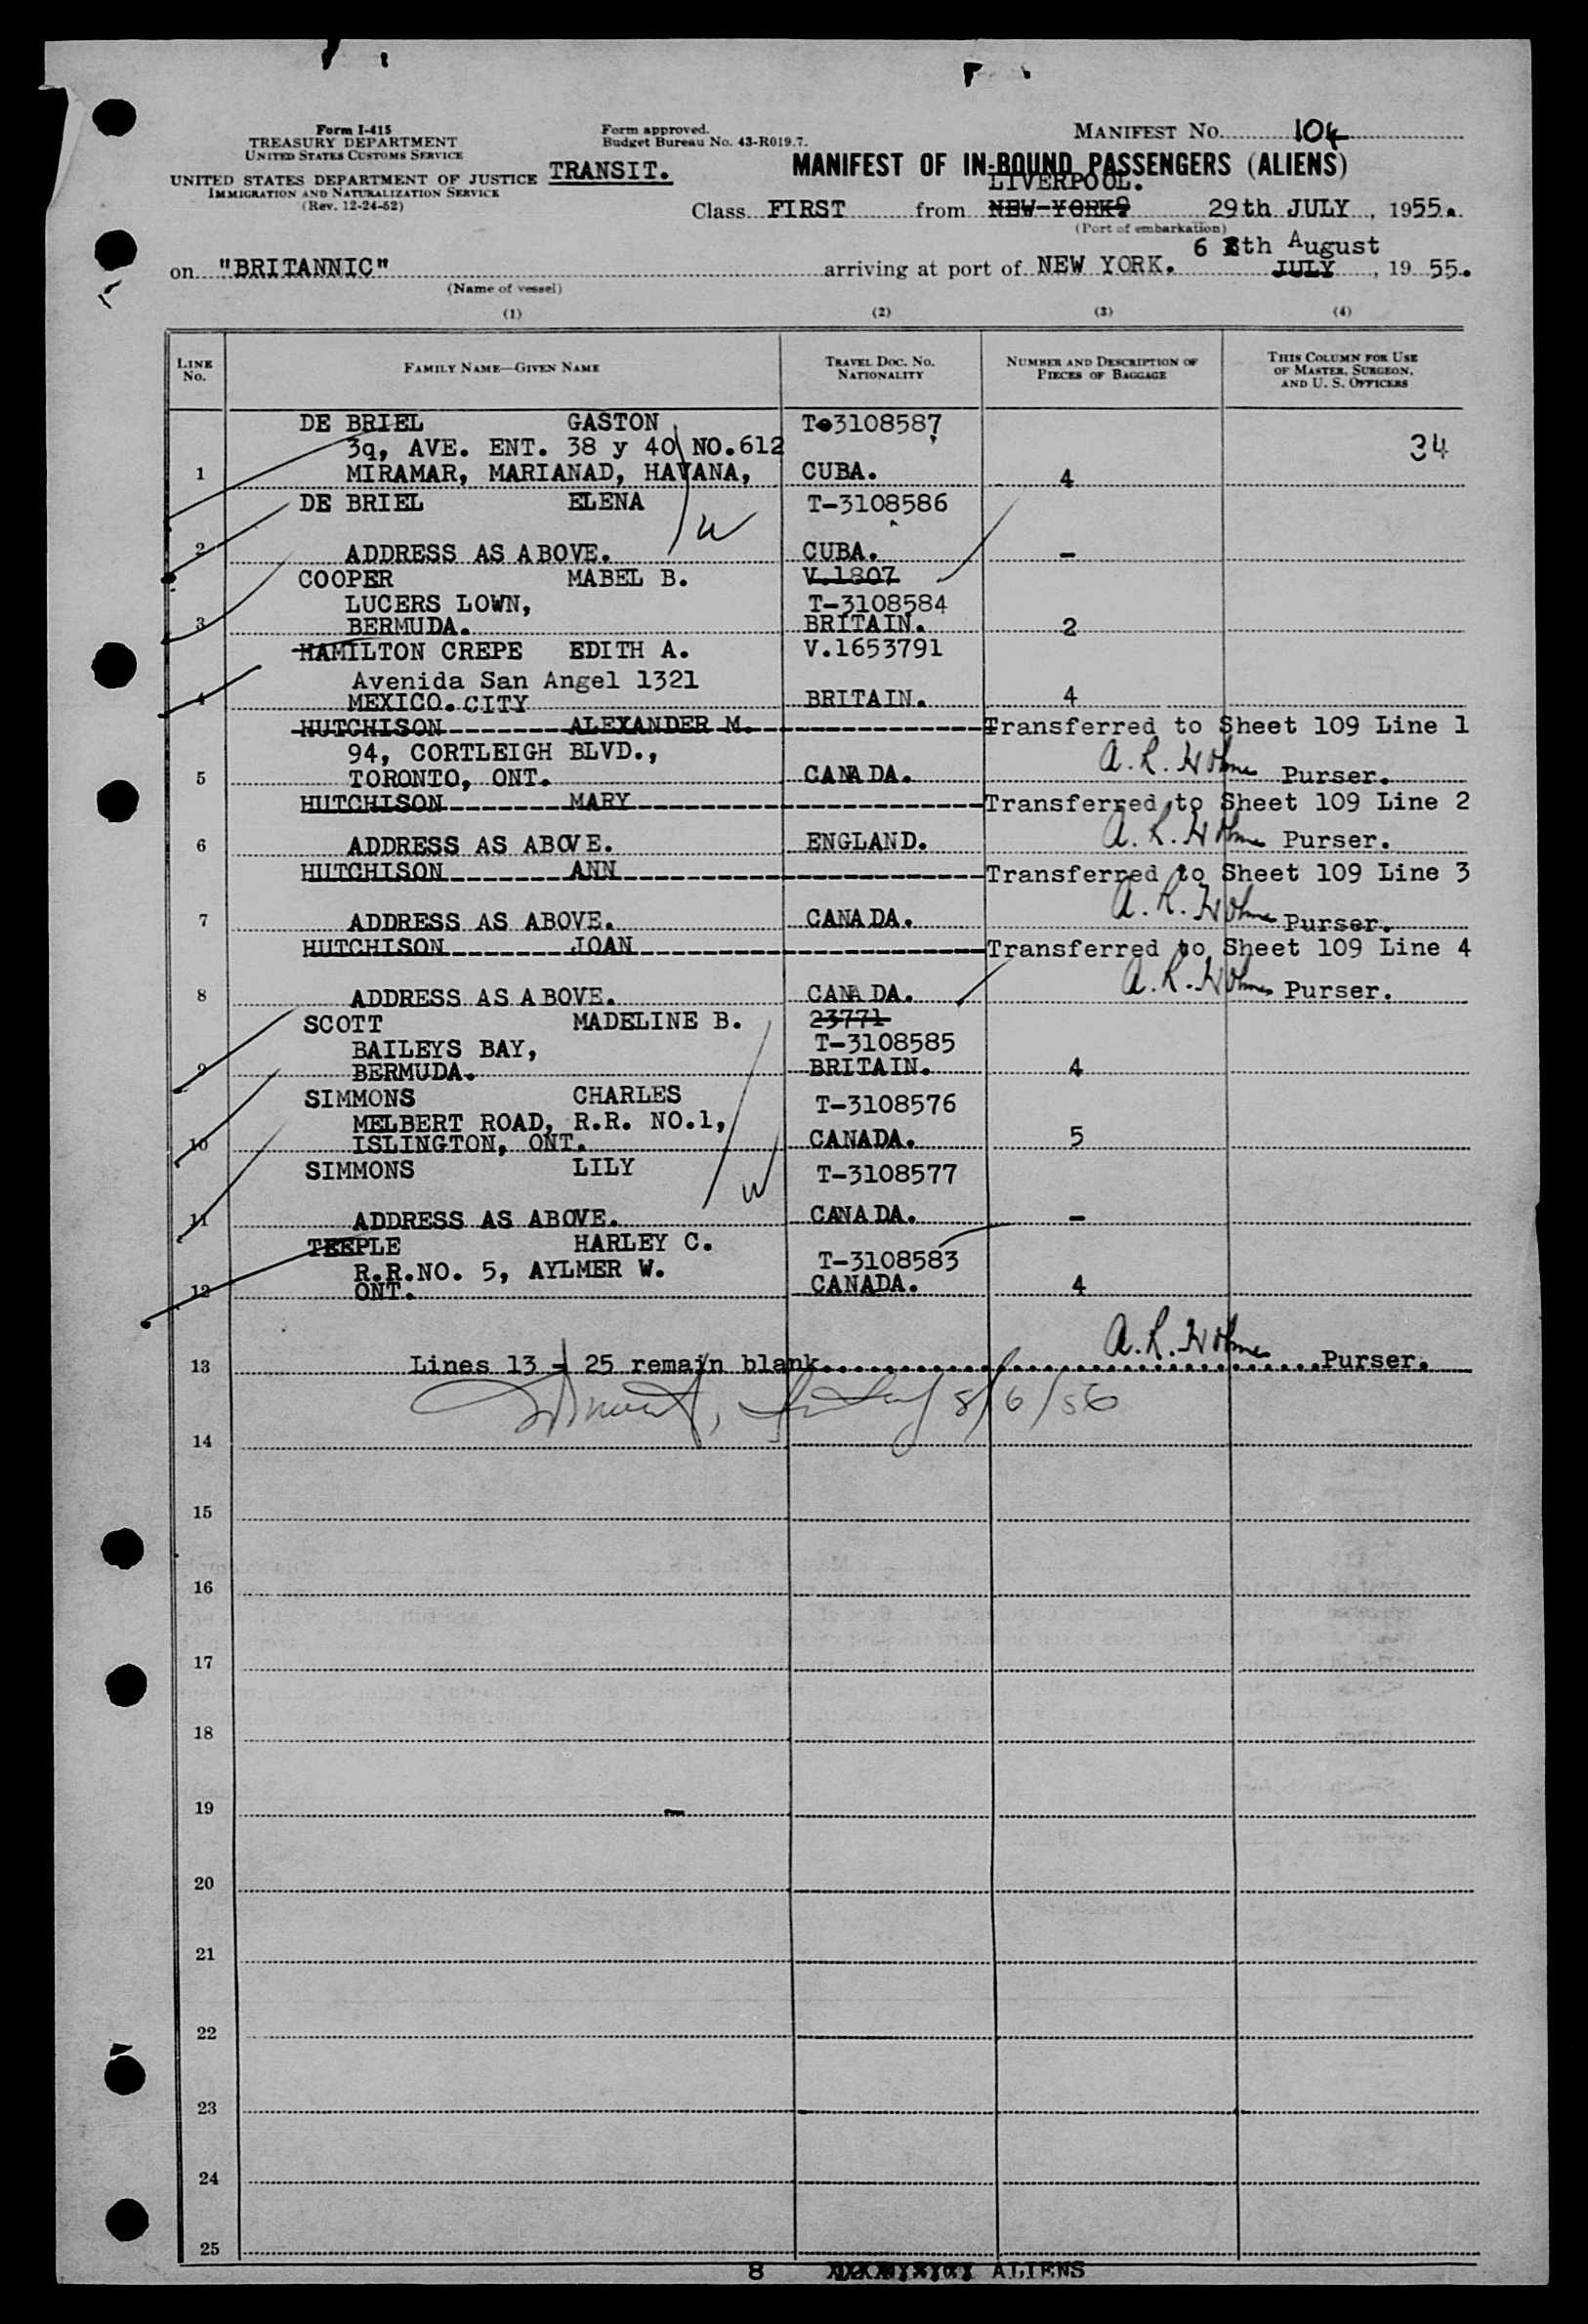 Form I-415
TREASURY DEPARTMENT
UNITED STATES CUSTOMS SERVICE
UNITED STATES DEPARTMENT OF JUSTICE
IMMIGRATION AND NATURALIZATION SERVICE
(Rev. 12-24-52)
Form approved.
Budget Bureau No. 43-R019.7.
TRANSIT.
MANIFEST NO. 104
MANIFEST OF IN-BOUND PASSENGERS (ALIENS)
LIVERPOOL.
Class FIRST from NEW YORK 29th JULY, 1955.
(Port of embarkation)
6 th August
on "BRITANNIC" arriving at port of NEW YORK. JULY, 19 55.
(Name of vessel)
(1) (2) (3) (4)
LINE NO. FAMILY NAME—GIVEN NAME TRAVEL DOC. NO. NATIONALITY NUMBER AND DESCRIPTION OF PIECES OF BAGGAGE THIS COLUMN FOR USE OF MASTER, SURGEON, AND U. S. OFFICERS
DE BRIEL GASTON T-3108587
3q, AVE. ENT. 38 y 40 NO.612 34
1 MIRAMAR, MARIANAD, HAVANA, CUBA. 4
DE BRIEL ELENA T-3108586
W
2 ADDRESS AS ABOVE. CUBA. -
COOPER MABEL B. V.1807
LUCERS LOWN, T-3108584
3 BERMUDA. BRITAIN. 2
HAMILTON CREPE EDITH A. V.1653791
Avenida San Angel 1321
4 MEXICO. CITY BRITAIN. 4
HUTCHISON ALEXANDER M. Transferred to Sheet 109 Line 1
94, CORTLEIGH BLVD.,
5 TORONTO, ONT. CANADA. A. R. Holme Purser.
HUTCHISON MARY Transferred to Sheet 109 Line 2
6 ADDRESS AS ABOVE. ENGLAND. A. R. Holme Purser.
HUTCHISON ANN Transferred to Sheet 109 Line 3
7 ADDRESS AS ABOVE. CANADA. A. R. Holme Purser.
HUTCHISON JOAN Transferred to Sheet 109 Line 4
8 ADDRESS AS ABOVE. CANADA. A. R. Holme Purser.
SCOTT MADELINE B. 23771
BAILEYS BAY, T-3108585
9 BERMUDA. BRITAIN. 4
SIMMONS CHARLES T-3108576
MELBERT ROAD, R.R. NO.1,
10 ISLINGTON, ONT. CANADA. 5
SIMMONS LILY T-3108577
W
11 ADDRESS AS ABOVE. CANADA. -
TEEPLE HARLEY C. T-3108583
R.R.NO. 5, AYLMER W.
12 ONT. CANADA. 4
13 Lines 13 - 25 remain blank A. R. Holme Purser.
8/6/56
14
15
16
17
18
19
20
21
22
23
24
25
8 ALIENS